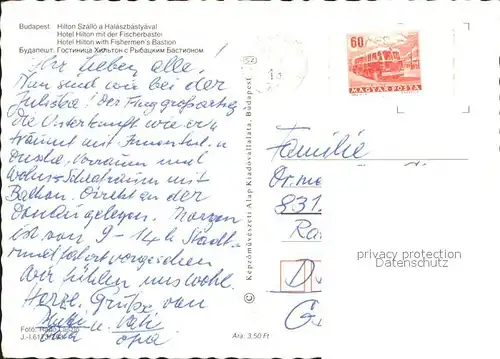 Budapest. Hilton Szálló a Halászbástyával
Hotel Hilton mit der Fischerbastei
Hotel Hilton with Fishermen's Bastion
Будапешт. Гостиница Хильтон с Рыбацким Бастионом
Ihr lieben alle!
Nun sind wir bei der
Juliska! der Flug großartig
die Unterkunft wie er
träumt mit
Dusche, Vorraum und
Wohn-Schlafraum mit
Balkon. Direkt an der
Donau gelegen. Morgen
ist von 9-14h Stadt-
rundfahrt vorgesehen
wir fühlen uns wohl.
Herzl. Grüße von
u. Vati
Oma opa
Foto:
J.-I.
Ára: 3,50 Ft
© Képzőművészeti Alap Kiadóvállalata, Budapest
60
MAGYAR POSTA
Familie
Dr.
831
Ra
D
G
privacy protection
watermark